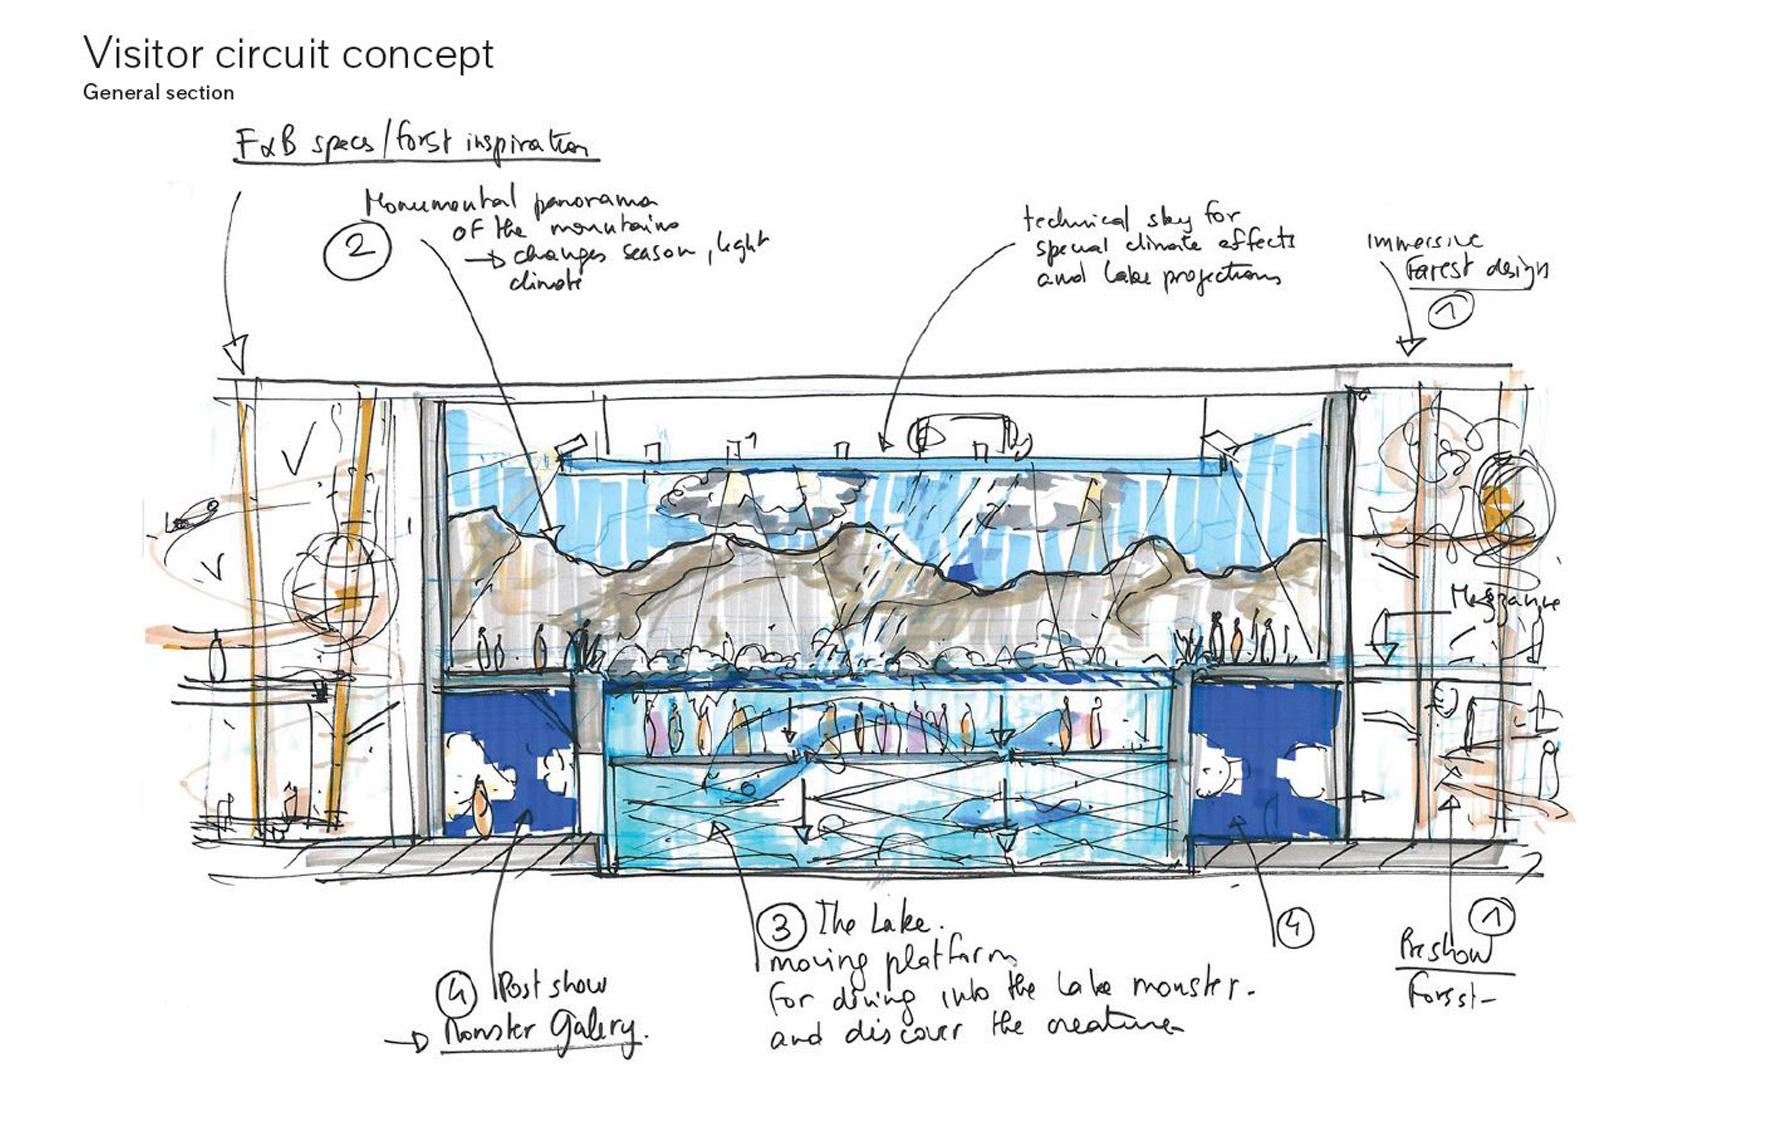 Visitor circuit concept
General section
F&B specs/forst inspiration
2
Monumental panorama
of the mountains
→ changes season, light
climate
technical sky for
special climate effects
and lake projections
immersive
Forest design
1
Mezzanine
3 The Lake.
moving platform
for diving into the lake monster.
and discover the creature
4
1
Preshow
Forsst
4 Post show
→ Monster Galery.